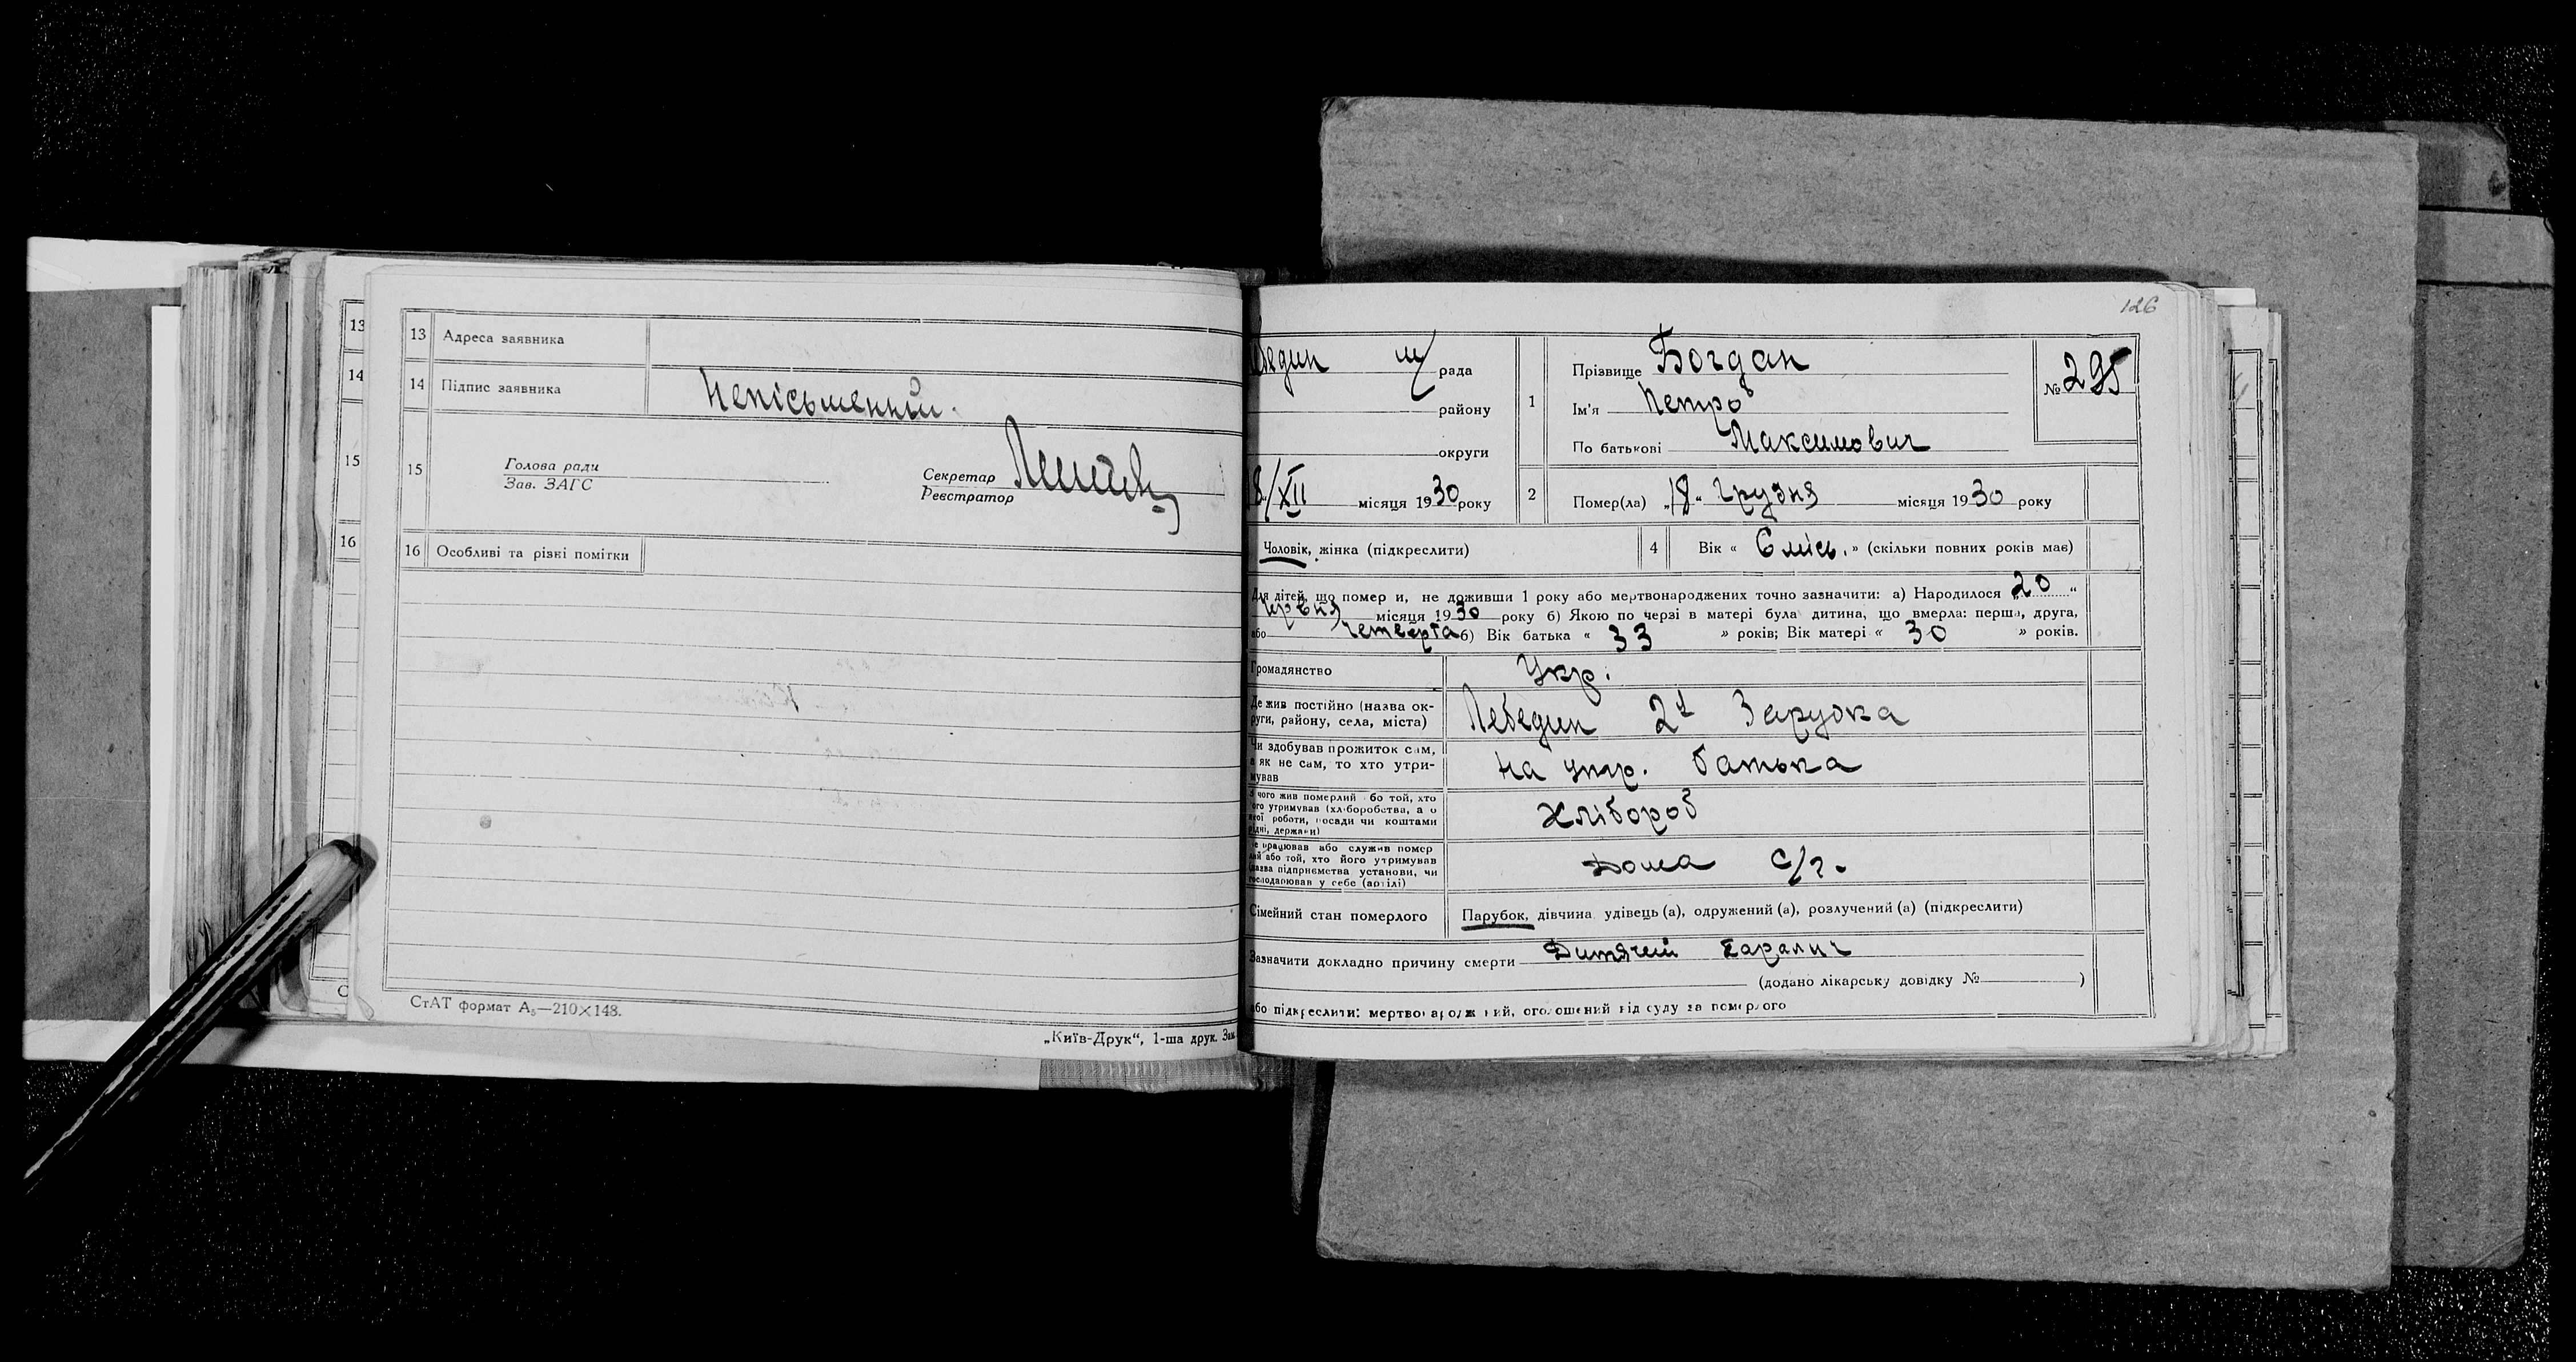 13
14
15
16
С
13 Адреса заявника
14 Підпис заявника Непісьменний.
15 Голова ради
Зав. ЗАГС
Секретар
Реєстратор
16 Особливі та різні помітки
СтАТ формат А₅—210×148.
„Київ-Друк“, 1-ша друк. Зам.
126
бедин рада
району
округи
1 Прізвище Богдан
Ім'я Петро
По батькові Максимович
№ 295
8/XII місяця 1930 року
2 Помер(ла) „18“ грудня місяця 1930 року
Чоловік, жінка (підкреслити)
4 Вік « 6 міс. » (скільки повних років має)
Для дітей, що помер и, не доживши 1 року або мертвонароджених точно зазначити: а) Народилося „20“
червня місяця 1930 року б) Якою по черзі в матері була дитина, що вмерла: перша, друга,
або четверта б) Вік батька « 33 » років; Вік матері « 30 » років.
Громадянство Укр.
Де жив постійно (назва ок-
руги, району, села, міста) Лебедин 2й
Чи здобував прожиток сам,
а як не сам, то хто утри-
мував на утр. батька
З чого жив померлий або той, хто
його утримував (хліборобства, а о
якої роботи, посади чи коштами
рідні, держави) Хлібороб
Де працював або служив помер
лий або той, хто його утримував
(назва підприємства установи, чи
господарював у себе (артілі) Дома с/г.
Сімейний стан померлого Парубок, дівчина, удівець(а), одружений(а), розлучений(а) (підкреслити)
Зазначити докладно причину смерти Дитячей параліч
(додано лікарську довідку № )
або підкреслити: мертвонароджений, оголошений від суду за померлого